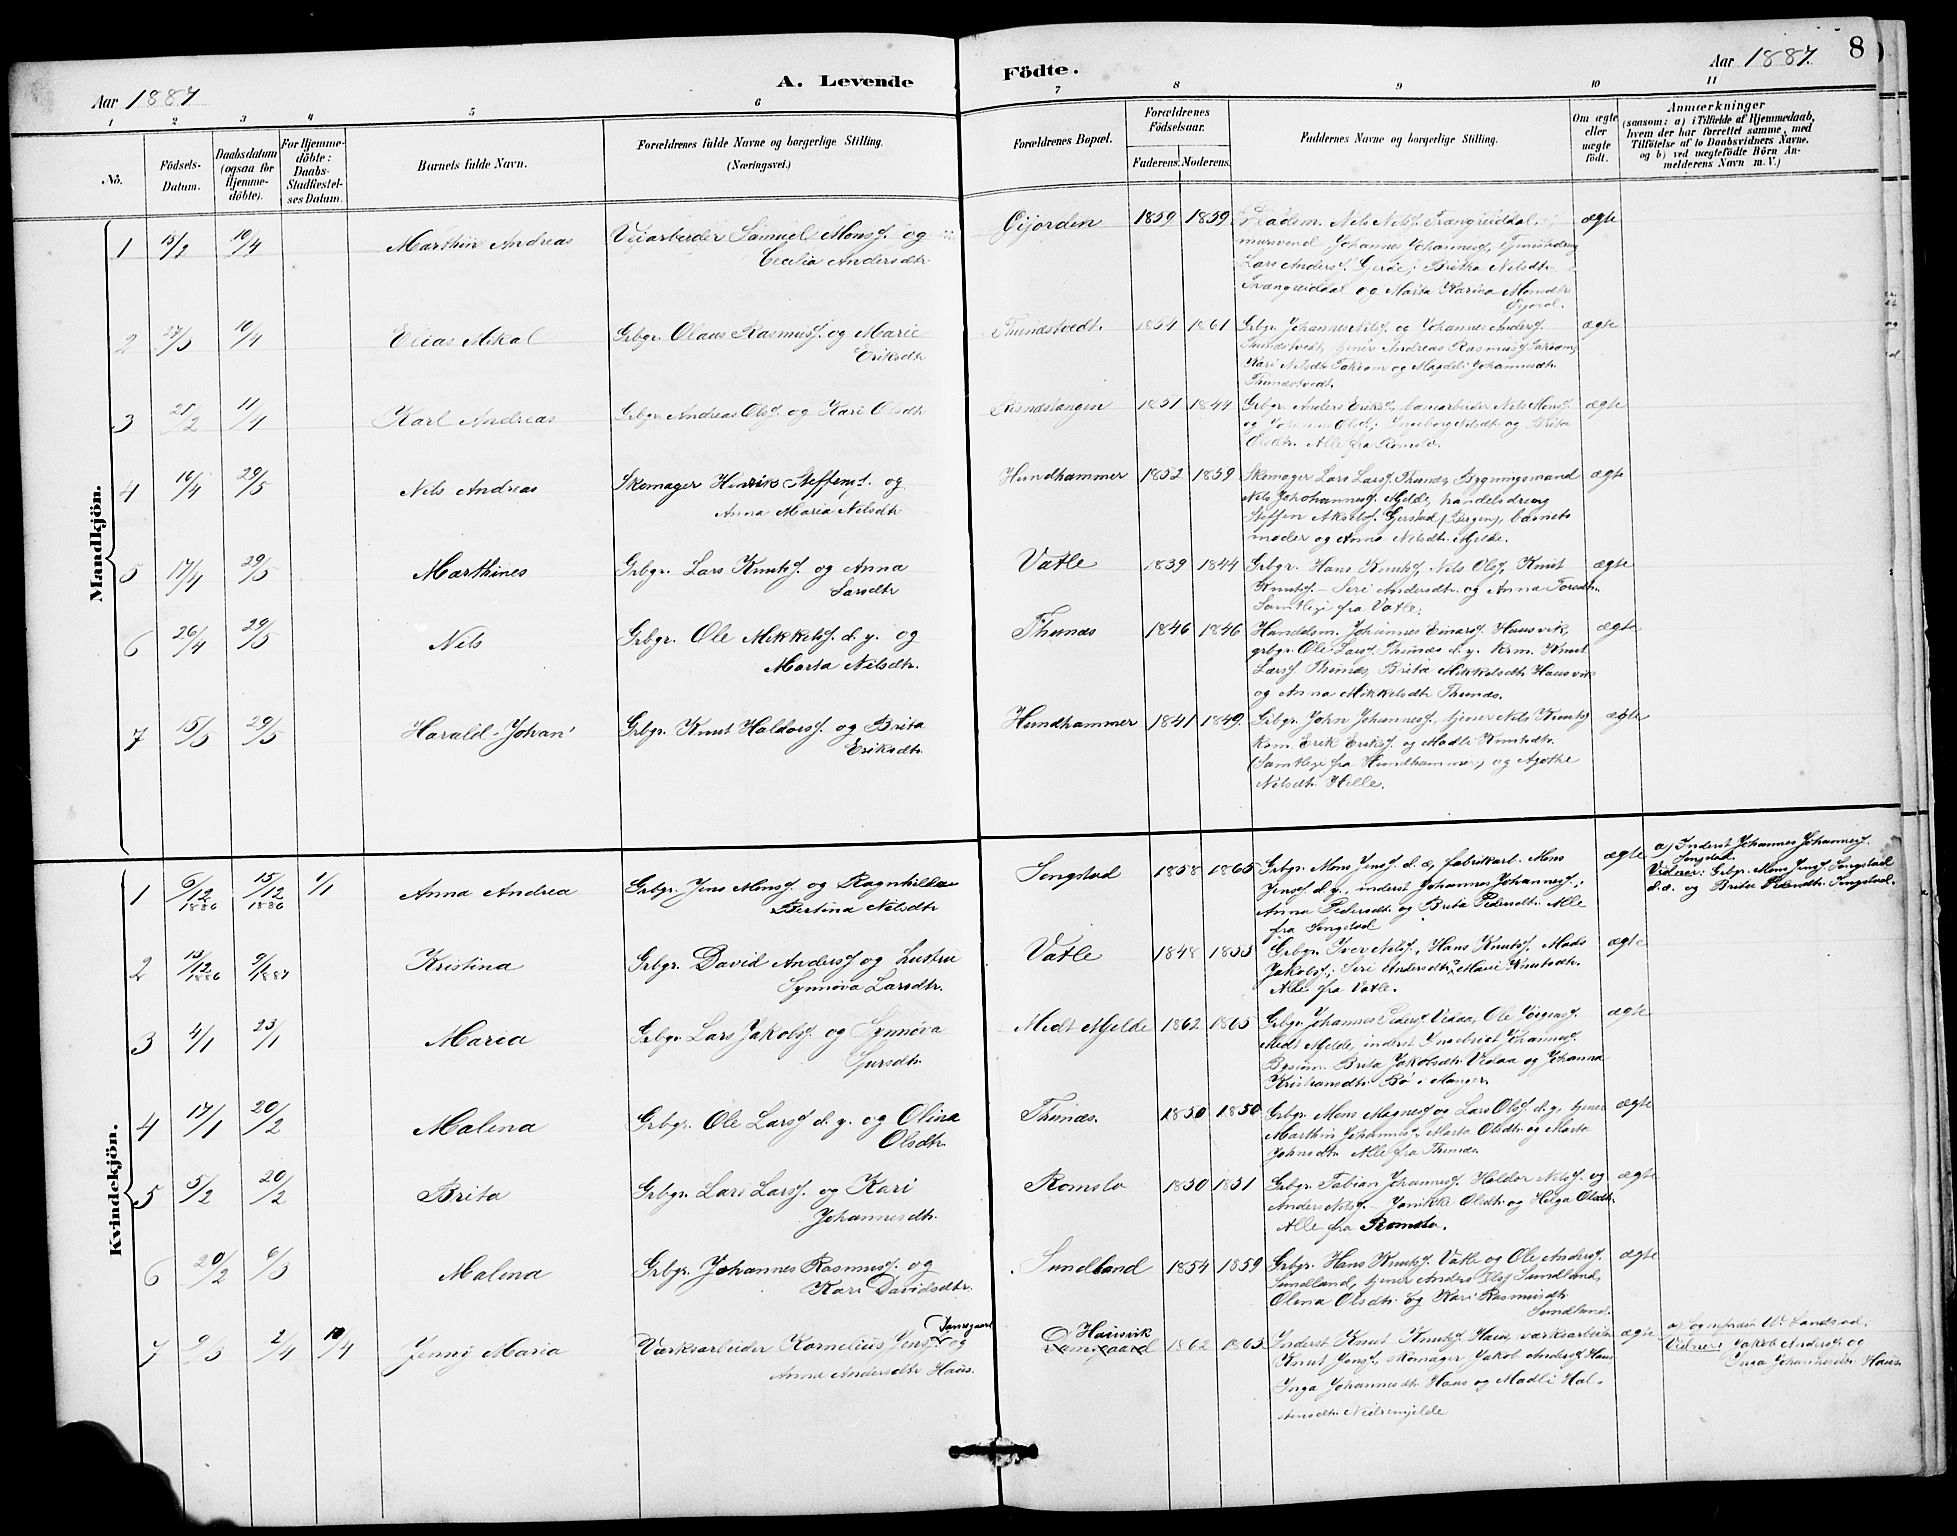 Aar 1887
A. Levende
Födte.
Aar 1887.
8
1 2 3 4 5 6 7 8 9 10 11
No.
Födsels-
Datum.
Daabsdatum
(ogsaa for
Hjemme-
döbte).
For Hjemme-
döbte:
Daabs-
Stadfæstel-
ses Datum.
Barnets fulde Navn.
Forældrenes fulde Navne og borgerlige Stilling.
(Næringsvei.)
Forældrenes Bopæl.
Forældrenes
Födselsaar.
Faderens. Moderens.
Faddernes Navne og borgerlige Stilling.
Om ægte
eller
uægte
födt.
Anmærkninger
(saasom: a) i Tilfælde af Hjemmedaab,
hvem der har forrettet samme, med
Tilföielse af to Daabsvidners Navne,
og b) ved uægtefödte Börn An-
melderens Navn m. V.)
Mandkjön.
1 15/2 10/4 Marthin Andreas
Veiarbeider Samuel Monss. og
Cecilia Andersdtr.
Gjorden 1859 1859
Nils Nilss. Trængereidtal
Johannes Johanness.
Lars Anderss. Gjerde; Britha Nilsdtr.
Trængereidtal og Marta Karina Monsdtr.
ægte
2 27/3 10/4 Elias Mikal
Grbgr. Olaus Rasmuss. og Marie
Eriksdtr.
Thunestvedt. 1854 1861
Grbgr. Johannes Nilss. og Johannes Anderss.
Thunestvedt, tjener Andreas Rasmuss.
Kari Nilsdtr. og Magdeli Johannesdtr.
Thunestvedt.
ægte
3 25/2 11/4 Karl Andreas
Grbgr. Andreas Olss. og Kari Olsdtr.
1851 1844
Grbgr. Anders Erikss., banearbeider Nils Monss.
og Johannes Olss.; Ingeborg Nilsdtr. og Brita
Olsdtr. Alle fra Romslo.
ægte
4 16/4 29/5 Nils Andreas
Skomager Henrik Steffens. og
Anna Maria Nilsdtr.
Hundhammer 1852 1859
Skomager Lars Larss. Thunes, Bygningsmand
Nils Johohanness. Mjelde, handelsdreng
Steffen Akselss. Gjerstad (Bergen), barnets
moder og Anna Nilsdtr. Mjelde.
ægte
5 17/4 29/5 Marthines
Grbgr. Lars Knuts. og Anna
Larsdtr.
Vatle 1839 1844
Grbgr. Hans Knuts., Nils Ols., Knut
Knuts. – Siri Andersdtr. og Anna Toresdtr.
Samtlige fra Vatle.
ægte
6 26/4 29/5 Nils
Grbgr. Ole Mikkels. d. y. og
Marta Nilsdtr.
Thunes 1846 1846
Handelsm. Johannes Einars. Hausvik,
grbgr. Ole Larss. Thunes d. y. Ksm. Knut
Larss. Thunes, Brita Mikkelsdtr. Hausvik
og Anna Mikkelsdtr. Thunes.
ægte
7 15/5 29/5 Harald Johan
Grbgr. Knut Haldors. og Brita
Eriksdtr.
Hundhammer 1841 1849.
Grbgr. John Johanness., tjener Nils Knuts.
ksm. Erik Eriks. og Madli Knutsdtr.
(Samtlige fra Hundhammer) og Agathe
Nilsdtr. Helle.
ægte
Kvindekjön.
1 6/12 1886 15/12 1886 1/1 Anna Andrea
Grbgr. Jens Monss. og Ragnhilda
Bertina Nilsdtr.
Songstad 1858 1865
Grbgr. Mons Jenss. d. æ., fabrikarb. Mons
Jenss. d. y., inderst Johannes Johanness.;
Anna Pedersdtr. og Brita Pedersdtr. Alle
fra Songstad
ægte
a) Inderst Johannes Johanness.
Songstad.
Vidner: Grbgr. Mons Jenss. Songstad
d. æ. og Brita Pedersdtr. Songstad.
2 13/12 1886 9/1 1887 Kristina
Grbgr. David Anderss. og hustru
Synnøva Larsdtr.
Vatle 1848 1855
Grbgr. Iver Nilss., Hans Knuts., Mads
Jakobs.; Siri Andersdtr., Mari Knutsdtr.
Alle fra Vatle.
ægte
3 4/1 23/1 Maria
Grbgr. Lars Jakobs. og Synnøva
Sjursdtr.
Midt Mjelde 1862 1865
Grbgr. Johannes Peders. Vedaa, Ole
Midt Mjelde, inderst Ingebrigt Johanness.
Brita Jakobsdtr. Vedaa og Johanna
Kristiansdtr. Bø i Manger.
ægte
4 17/1 20/2 Malena
Grbgr. Ole Larss. d. y. og Olina
Olsdtr.
Thunes. 1850 1850
Grbgr. Mons Magness. og Lars Olss. d. y., tjener
Marthin Johanness., Marta Olsdtr. og Marta
Johnsdtr. Alle fra Thunes.
ægte
5 5/2 20/2 Brita
Grbgr. Lars Larss. og Kari
Johannesdtr.
Romslo 1850 1851
Grbgr. Fabian Johanness. Haldor Nilss. og
Anders Nilss. – Janikke Olsdtr. og Helga Olsdtr.
Alle fra Romslo.
ægte
6 20/2 6/3 Malena
Grbgr. Johannes Rasmuss. og
Kari Davidsdtr.
Sundland 1854 1859
Grbgr. Hans Knuts. Vatle og Ole Anderss.
Sundland, tjener Anders Olss. Sundland,
Olina Olsdtr. og Kari Rasmusdtr.
Sundland.
ægte
7 9/3 2/4 10/4 Jenni Maria
Værksarbeider Kornelius Jenss. Damsgaard og
Anna Andersdtr. Haus.
Hausvik
Damsgaard 1862 1863
Inderst Knut Knuts. Haus, værksarbeider
Knut Jenss., skomager Jakob Anderss. Haus
Inga Johannesdtr. Haus og Madli Hal-
Mjelde
ægte
a) Sognepræst W. Landstad.
Vidner: Jakob Anderss. og
Inga Johannesdtr. Haus.